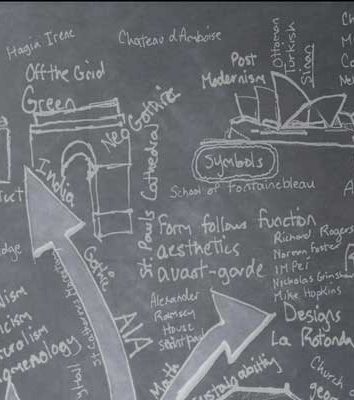 Hagia Irene
Chateau d'Amboise
Ottoman
Turkish
Sinan
Off the Grid
Green
Neo Gothic
Post
Modernism
India
St. Pauls Cathedral
Symbols
School of Fontainebleau
Form follows function
aesthetics
avant-garde
Richard Rogers
Norman Foster
IM Pei
Nicholas Grimsha
Mike Hopkins
Gothic
Alexander
Ramsey
House
AIA
Designs
La Rotonda
Math
Church
geo